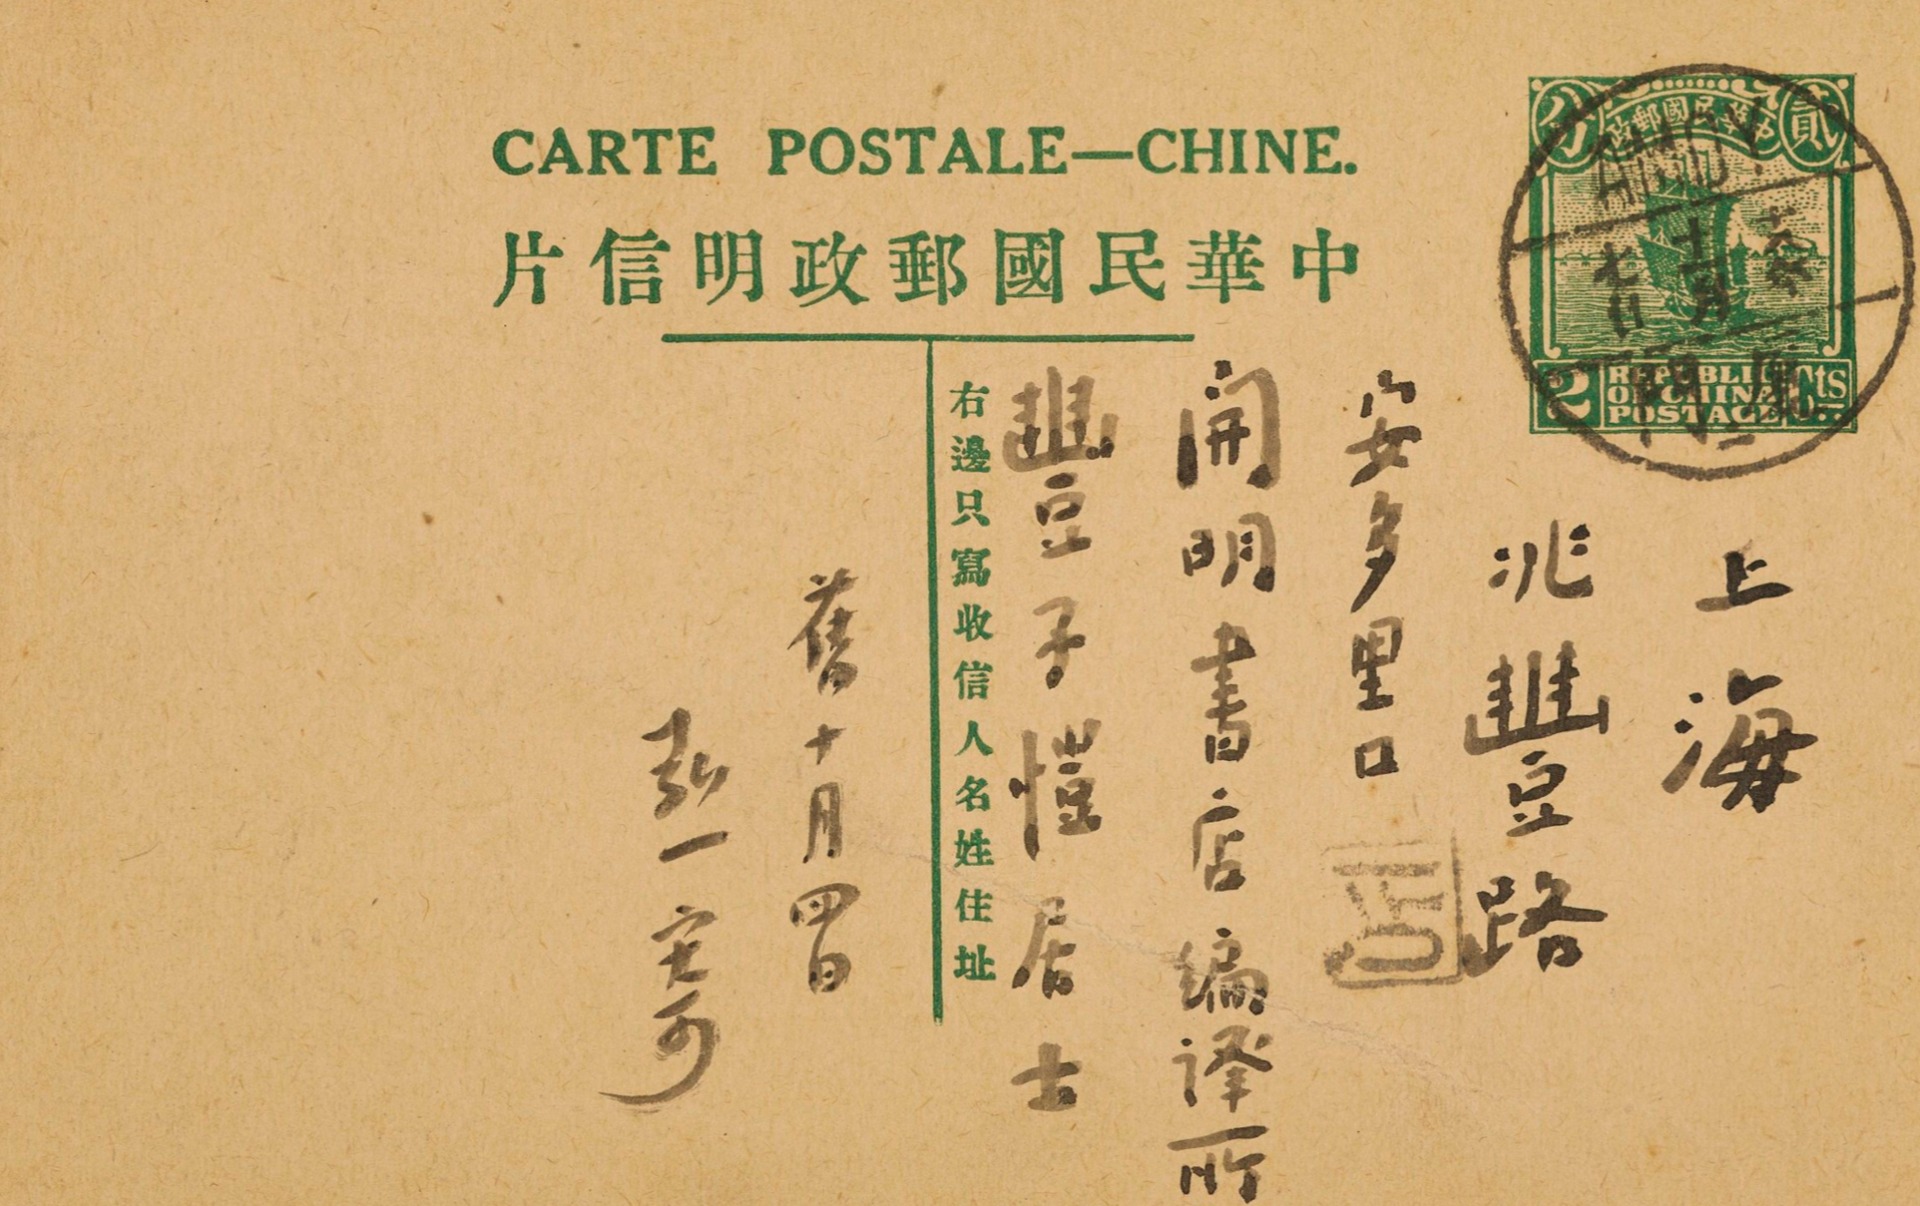 CARTE POSTALE—CHINE.
中華民國郵政明信片
中華民國郵政
貳分
2 Cts
REPUBLIC
OF CHINA
POSTAGE
上海
兆豐路
安多里口
開明書店編譯所
豐子愷居士
右邊只寫收信人名姓住址
舊十月四日
弘一寄